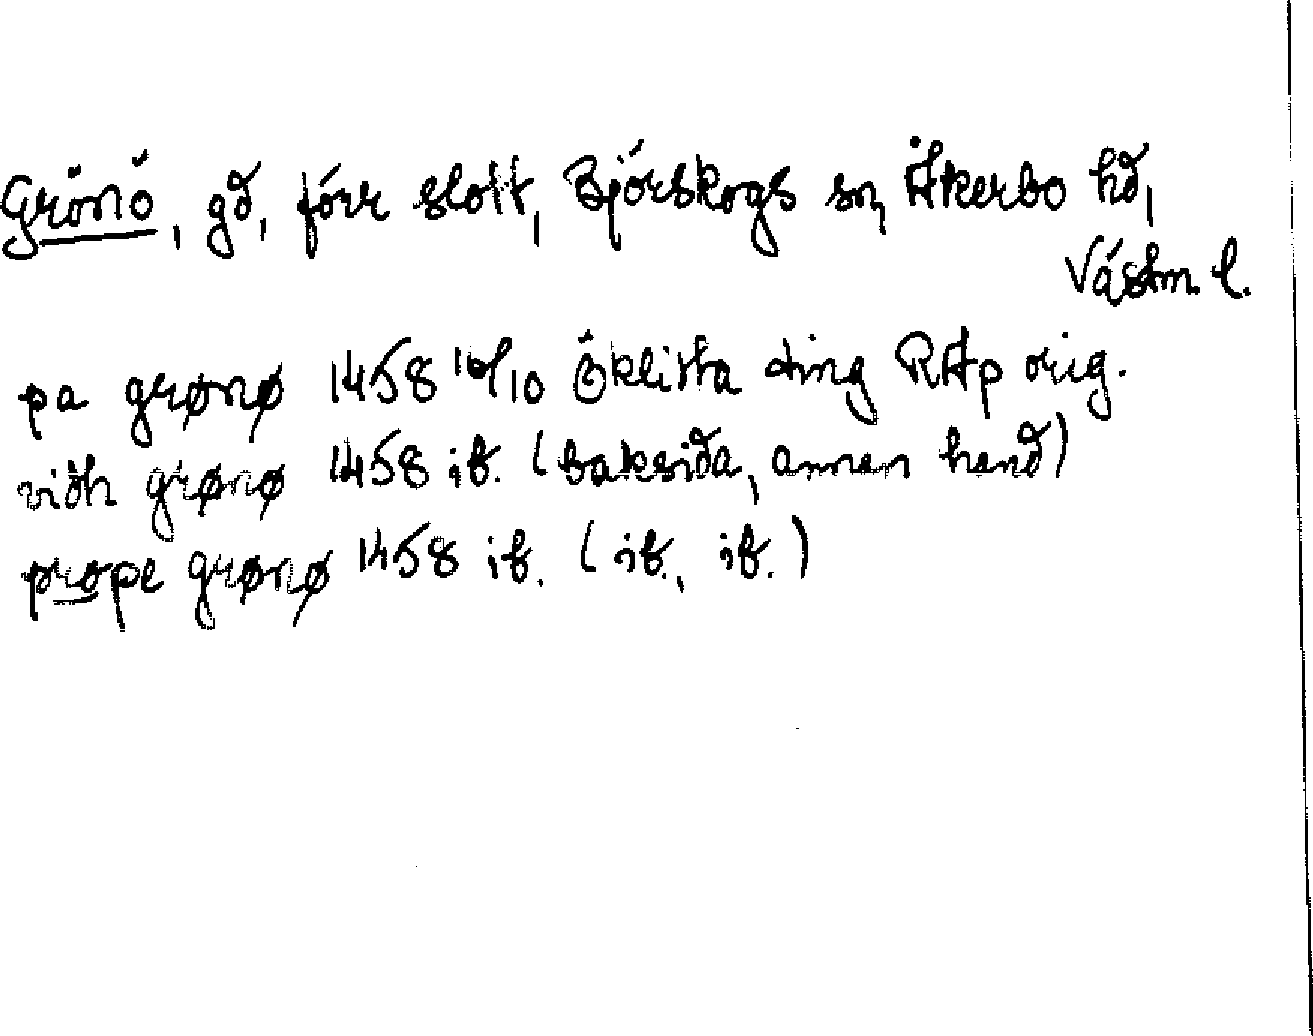 Grönö, gd, förr slott, Björskogs sn, Åkerbo hd,
Västm. l.
pa grønø 1458 16/10 Öklista ting RAp orig.
vidh grønø 1458 ib. (baksida, annan hand)
prope grønø 1458 ib. (ib., ib.)